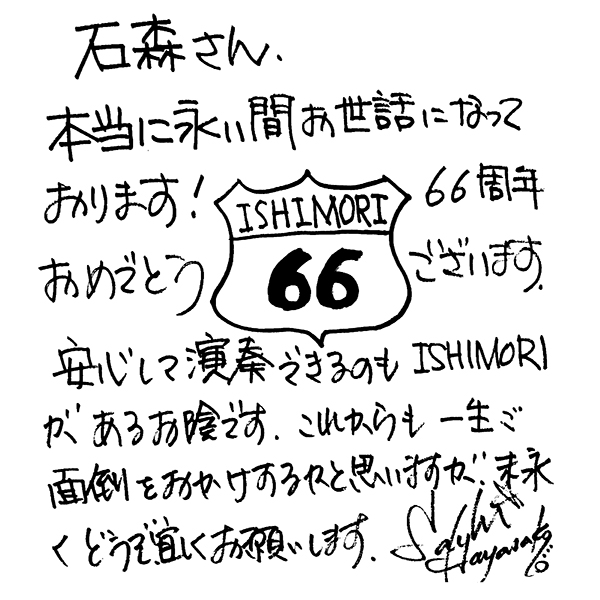 石森さん、
本当に永い間お世話になって
おります！
ISHIMORI
66
66周年
おめでとう
ございます。
安心して演奏できるのも ISHIMORI
が、あるお陰です。これからも一生ご
面倒をおかけするかと思いますが、末永
くどうぞ宜しくお願いします。